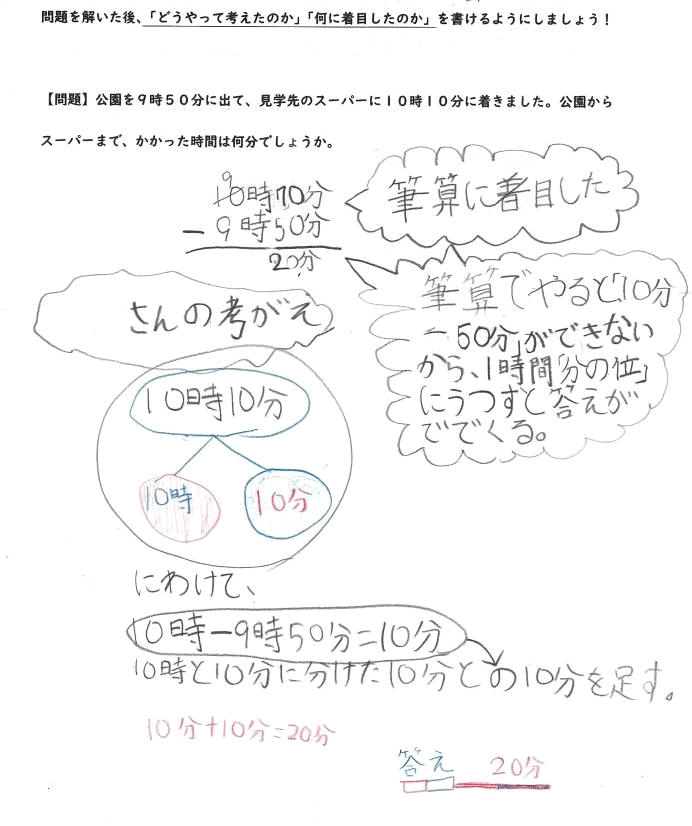 問題を解いた後、「どうやって考えたのか」「何に着目したのか」を書けるようにしましょう！
【問題】公園を９時５０分に出て、見学先のスーパーに１０時１０分に着きました。公園から
スーパーまで、かかった時間は何分でしょうか。
9
10時70分
－9時50分
20分
筆算に着目した
筆算でやると「10分
－50分」ができない
から、1時間「分の位」
にうつすと答えが
でてくる。
さんの考がえ
10時10分
10時 10分
にわけて、
10時－9時50分＝10分
10時と10分に分けた10分との10分を足す。
10分＋10分＝20分
答え 20分